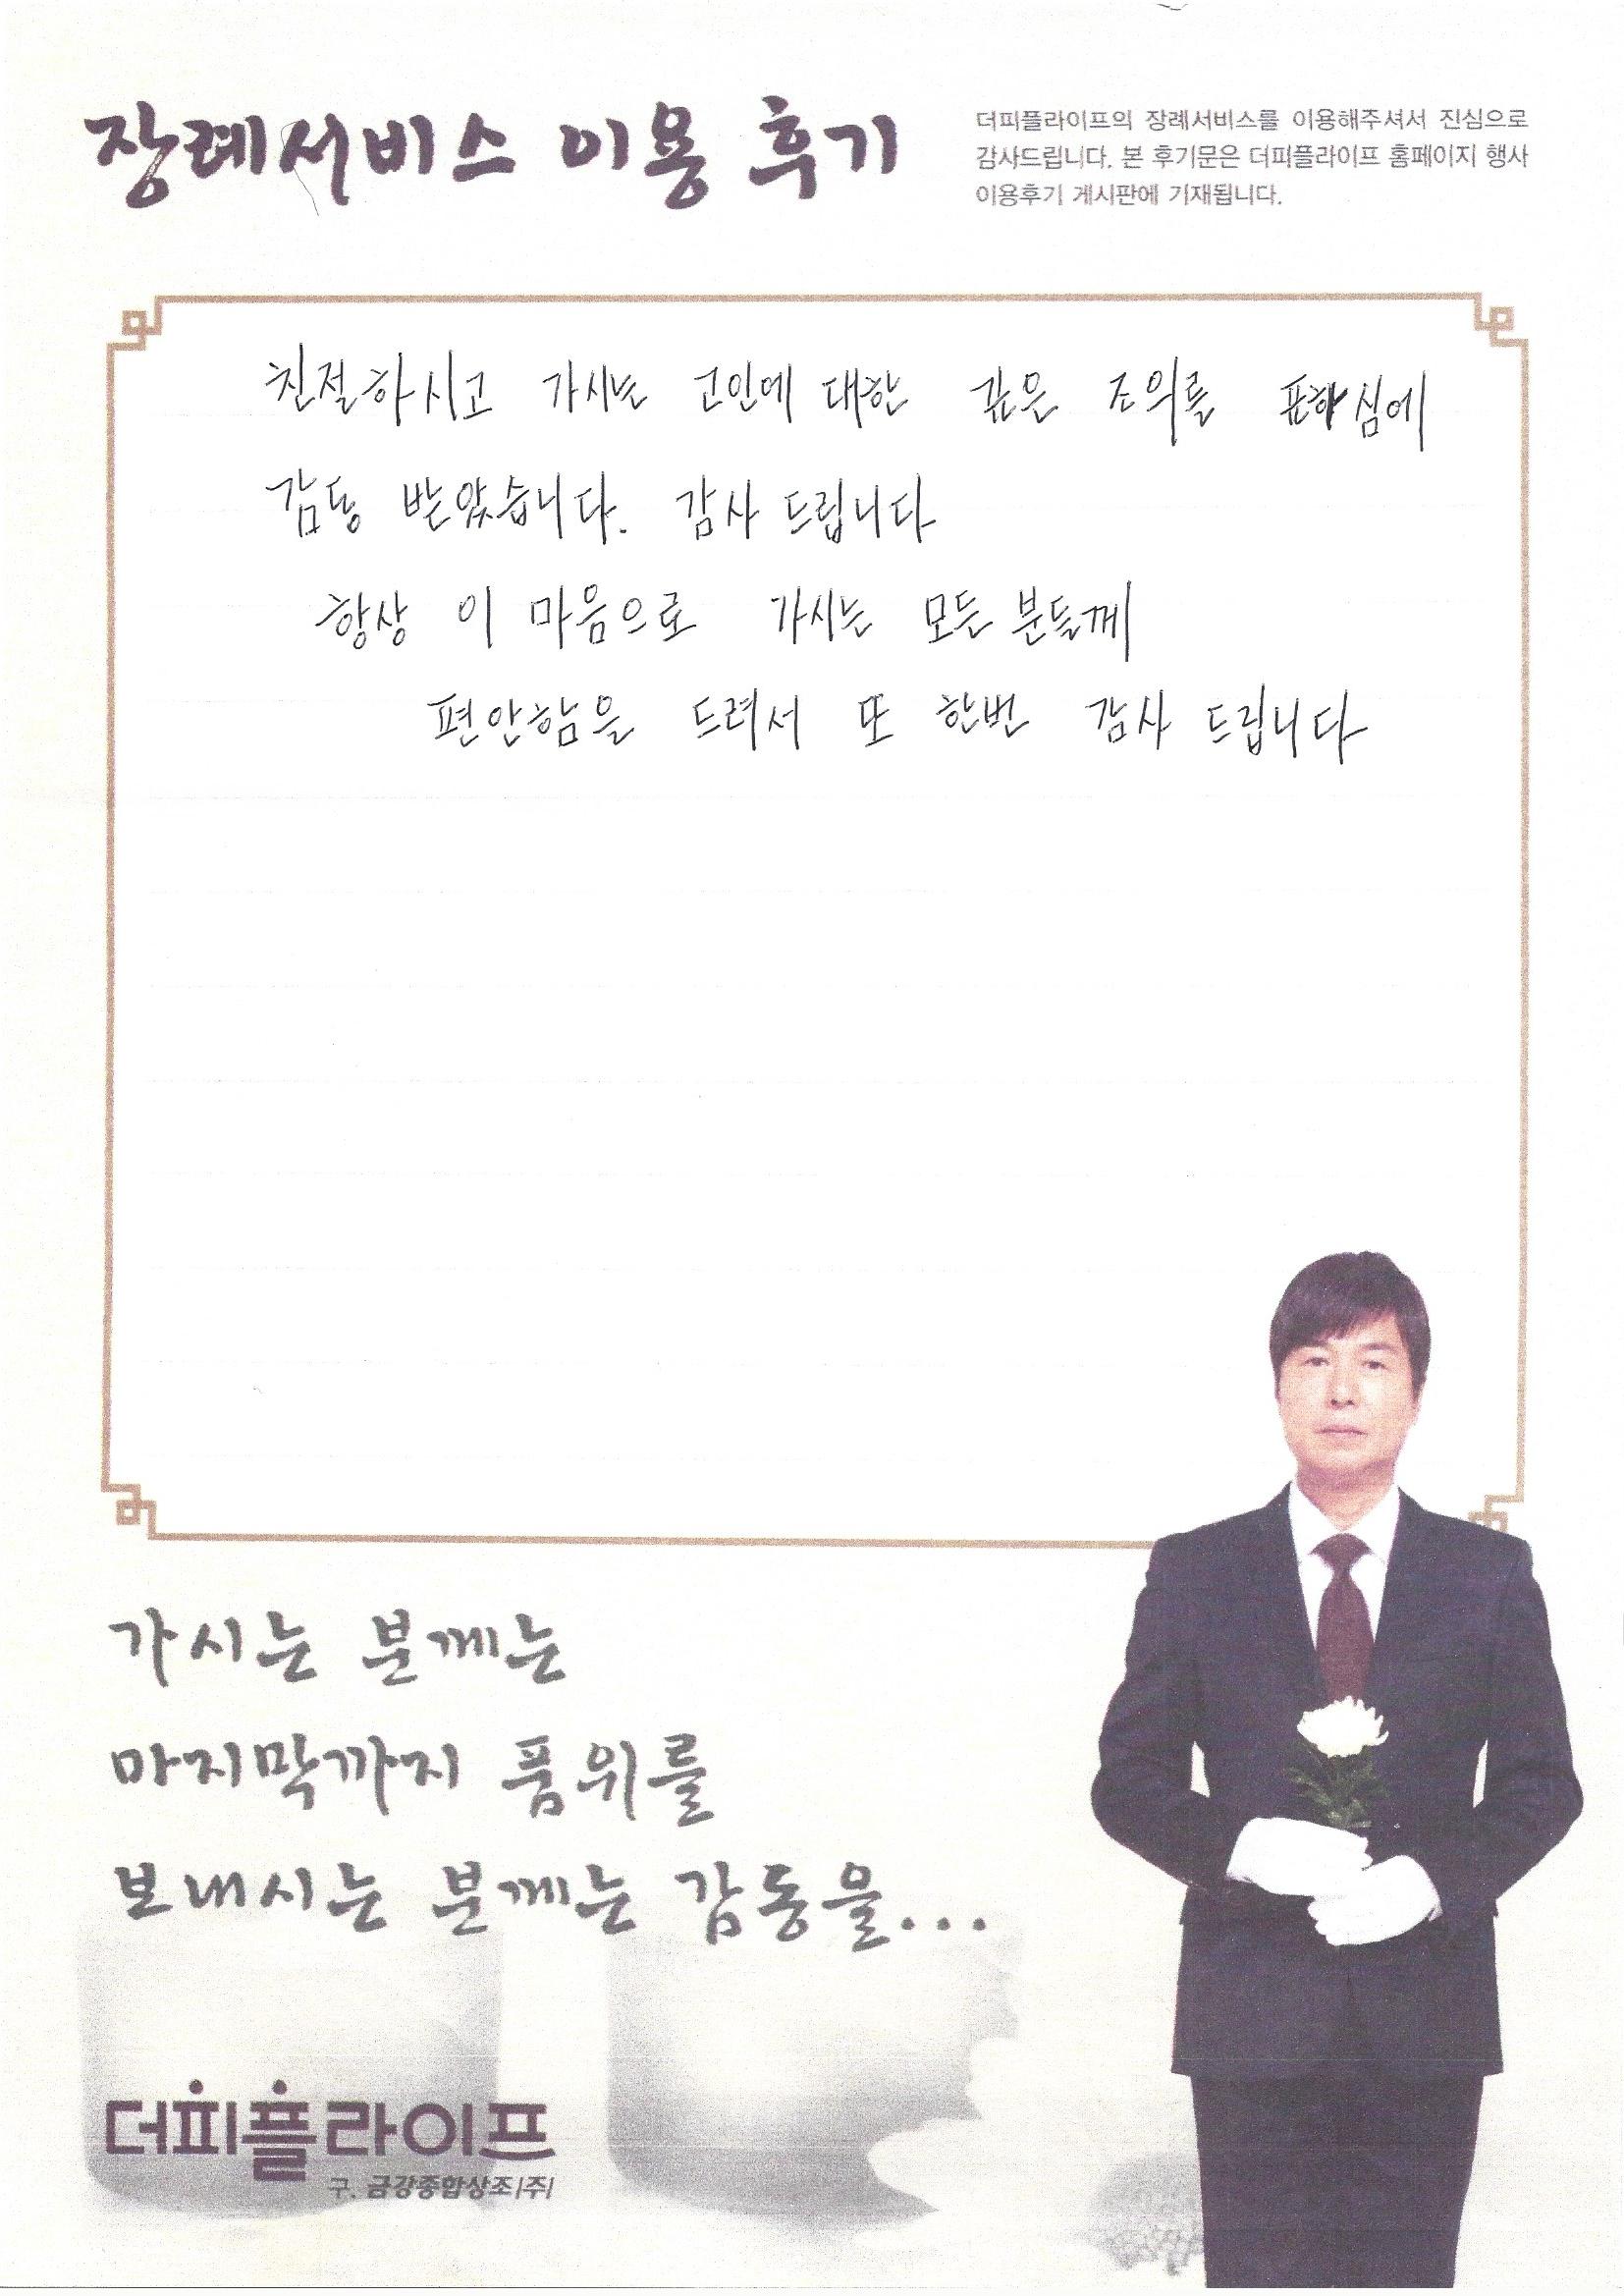 장례서비스 이용 후기
더피플라이프의 장례서비스를 이용해주셔서 진심으로
감사드립니다. 본 후기문은 더피플라이프 홈페이지 행사
이용후기 게시판에 기재됩니다.
친절하시고 가시는 고인에 대한 깊은 조의를 표하심에
감동 받았습니다. 감사 드립니다
항상 이 마음으로 가시는 모든 분들께
편안함을 드려서 또 한번 감사 드립니다
가시는 분께는
마지막까지 품위를
보내시는 분께는 감동을...
더피플라이프
구. 금강종합상조(주)